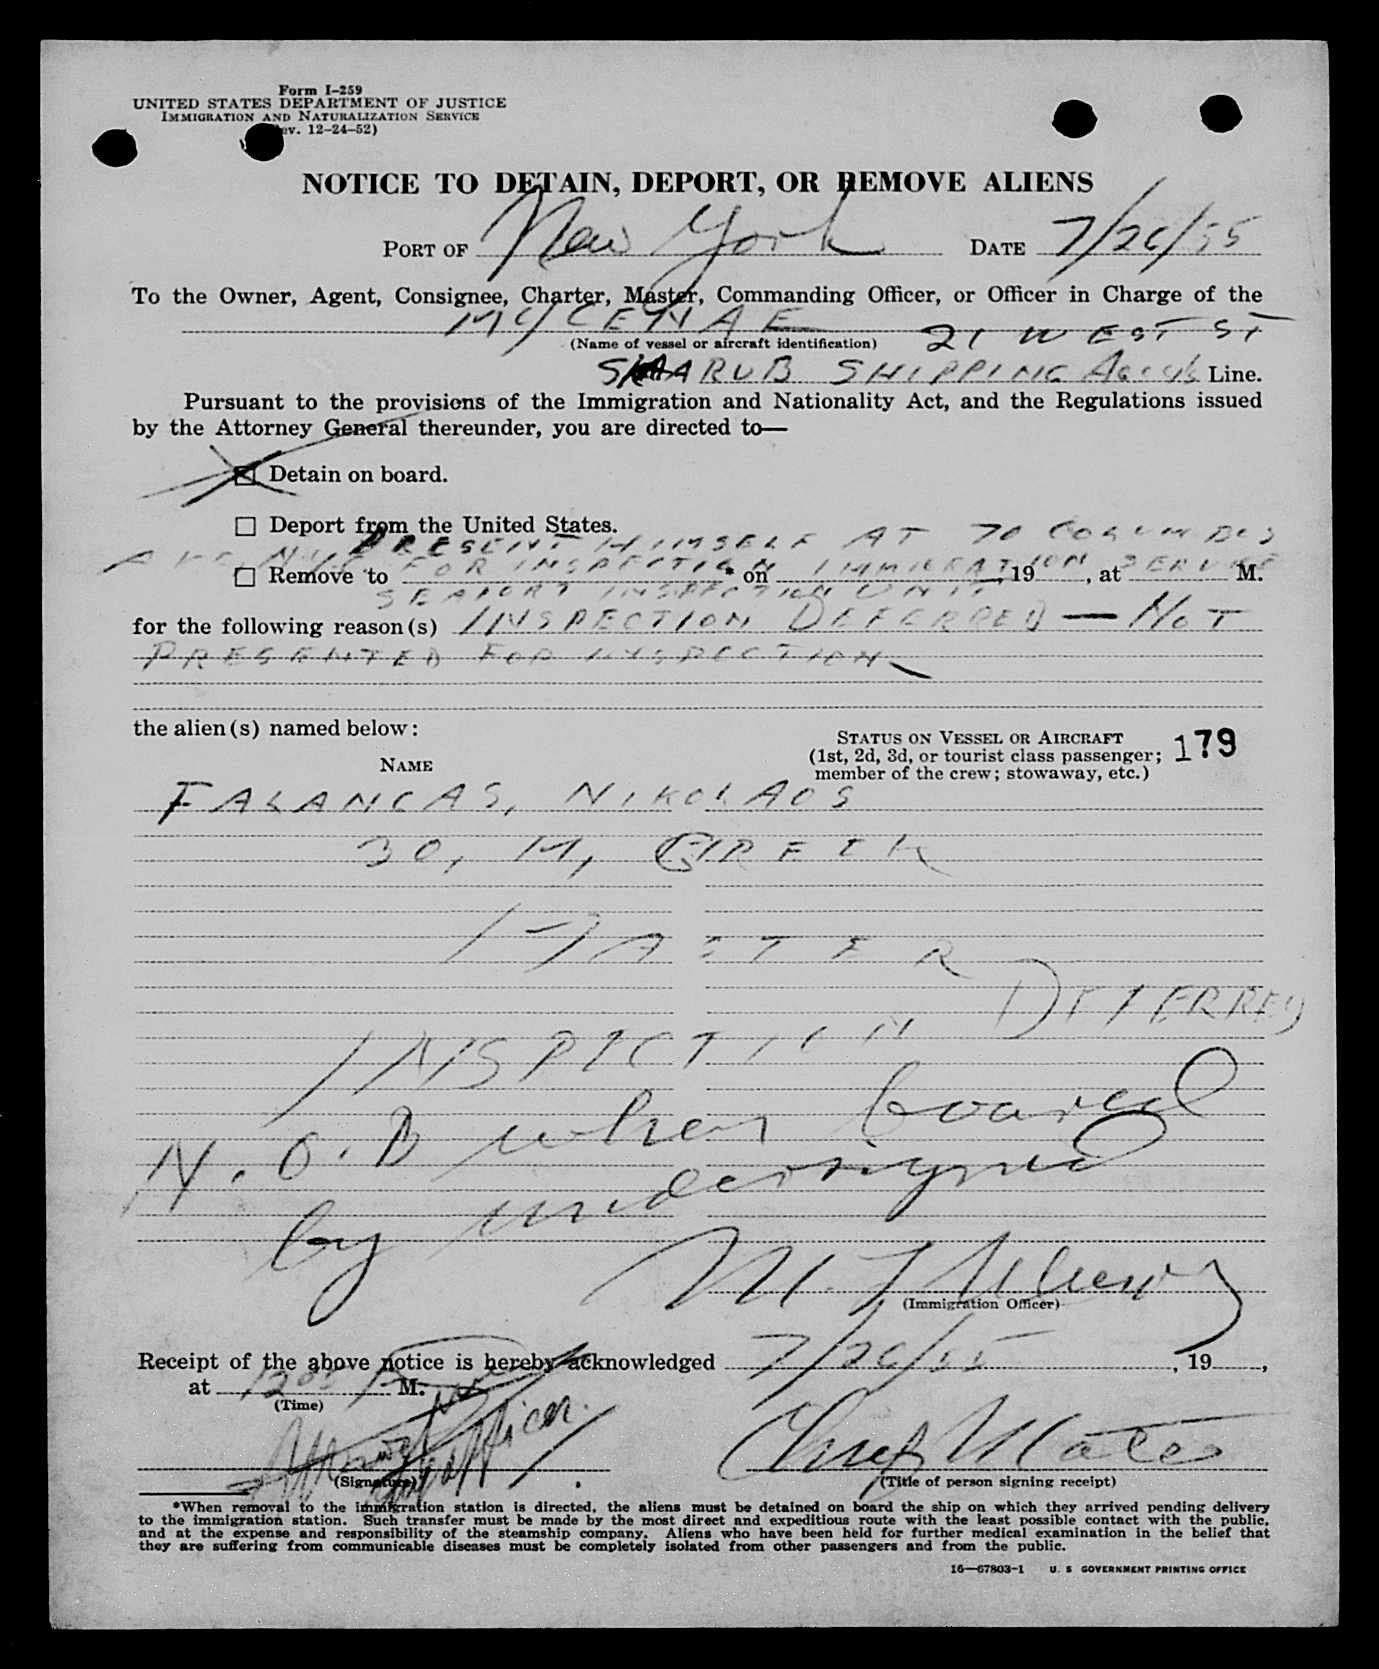 Form I-259
UNITED STATES DEPARTMENT OF JUSTICE
IMMIGRATION AND NATURALIZATION SERVICE
ev. 12-24-52)
NOTICE TO DETAIN, DEPORT, OR REMOVE ALIENS
PORT OF New York DATE 7/26/55
To the Owner, Agent, Consignee, Charter, Master, Commanding Officer, or Officer in Charge of the
(Name of vessel or aircraft identification) 21 WEST ST
SHIPPING Line.
Pursuant to the provisions of the Immigration and Nationality Act, and the Regulations issued
by the Attorney General thereunder, you are directed to—
☒ Detain on board.
☐ Deport from the United States.
PRESENT HIMSELF AT 70 COLUMBUS
AVENUE FOR INSPECTION IMMIGRATION SERVICE
☐ Remove to * on , 19 , at M.
SEAPORT INSPECTION UNIT
for the following reason(s) INSPECTION DEFERRED — NOT
PRESENTED FOR INSPECTION
the alien(s) named below:
STATUS ON VESSEL OR AIRCRAFT
(1st, 2d, 3d, or tourist class passenger;
member of the crew; stowaway, etc.)
179
NAME
FALANGAS, NIKOLAOS
30, M, GREEK
MASTER
INSPECTION DEFERRED
N.O.B when boarded
by undersigned
(Immigration Officer)
Receipt of the above notice is hereby acknowledged 7/26/55, 19 ,
at 12 M.
(Time)
Chief Mate
(Signature) (Title of person signing receipt)
*When removal to the immigration station is directed, the aliens must be detained on board the ship on which they arrived pending delivery
to the immigration station. Such transfer must be made by the most direct and expeditious route with the least possible contact with the public,
and at the expense and responsibility of the steamship company. Aliens who have been held for further medical examination in the belief that
they are suffering from communicable diseases must be completely isolated from other passengers and from the public.
16—67803-1 U. S GOVERNMENT PRINTING OFFICE